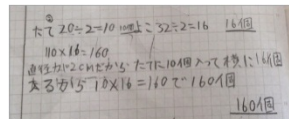 たて 20÷2=10 10個 よこ 32÷2=16 16個
10×16=160
直径が2cmだから たてに10個入って横に16個
あるから 10×16=160で160個
160個